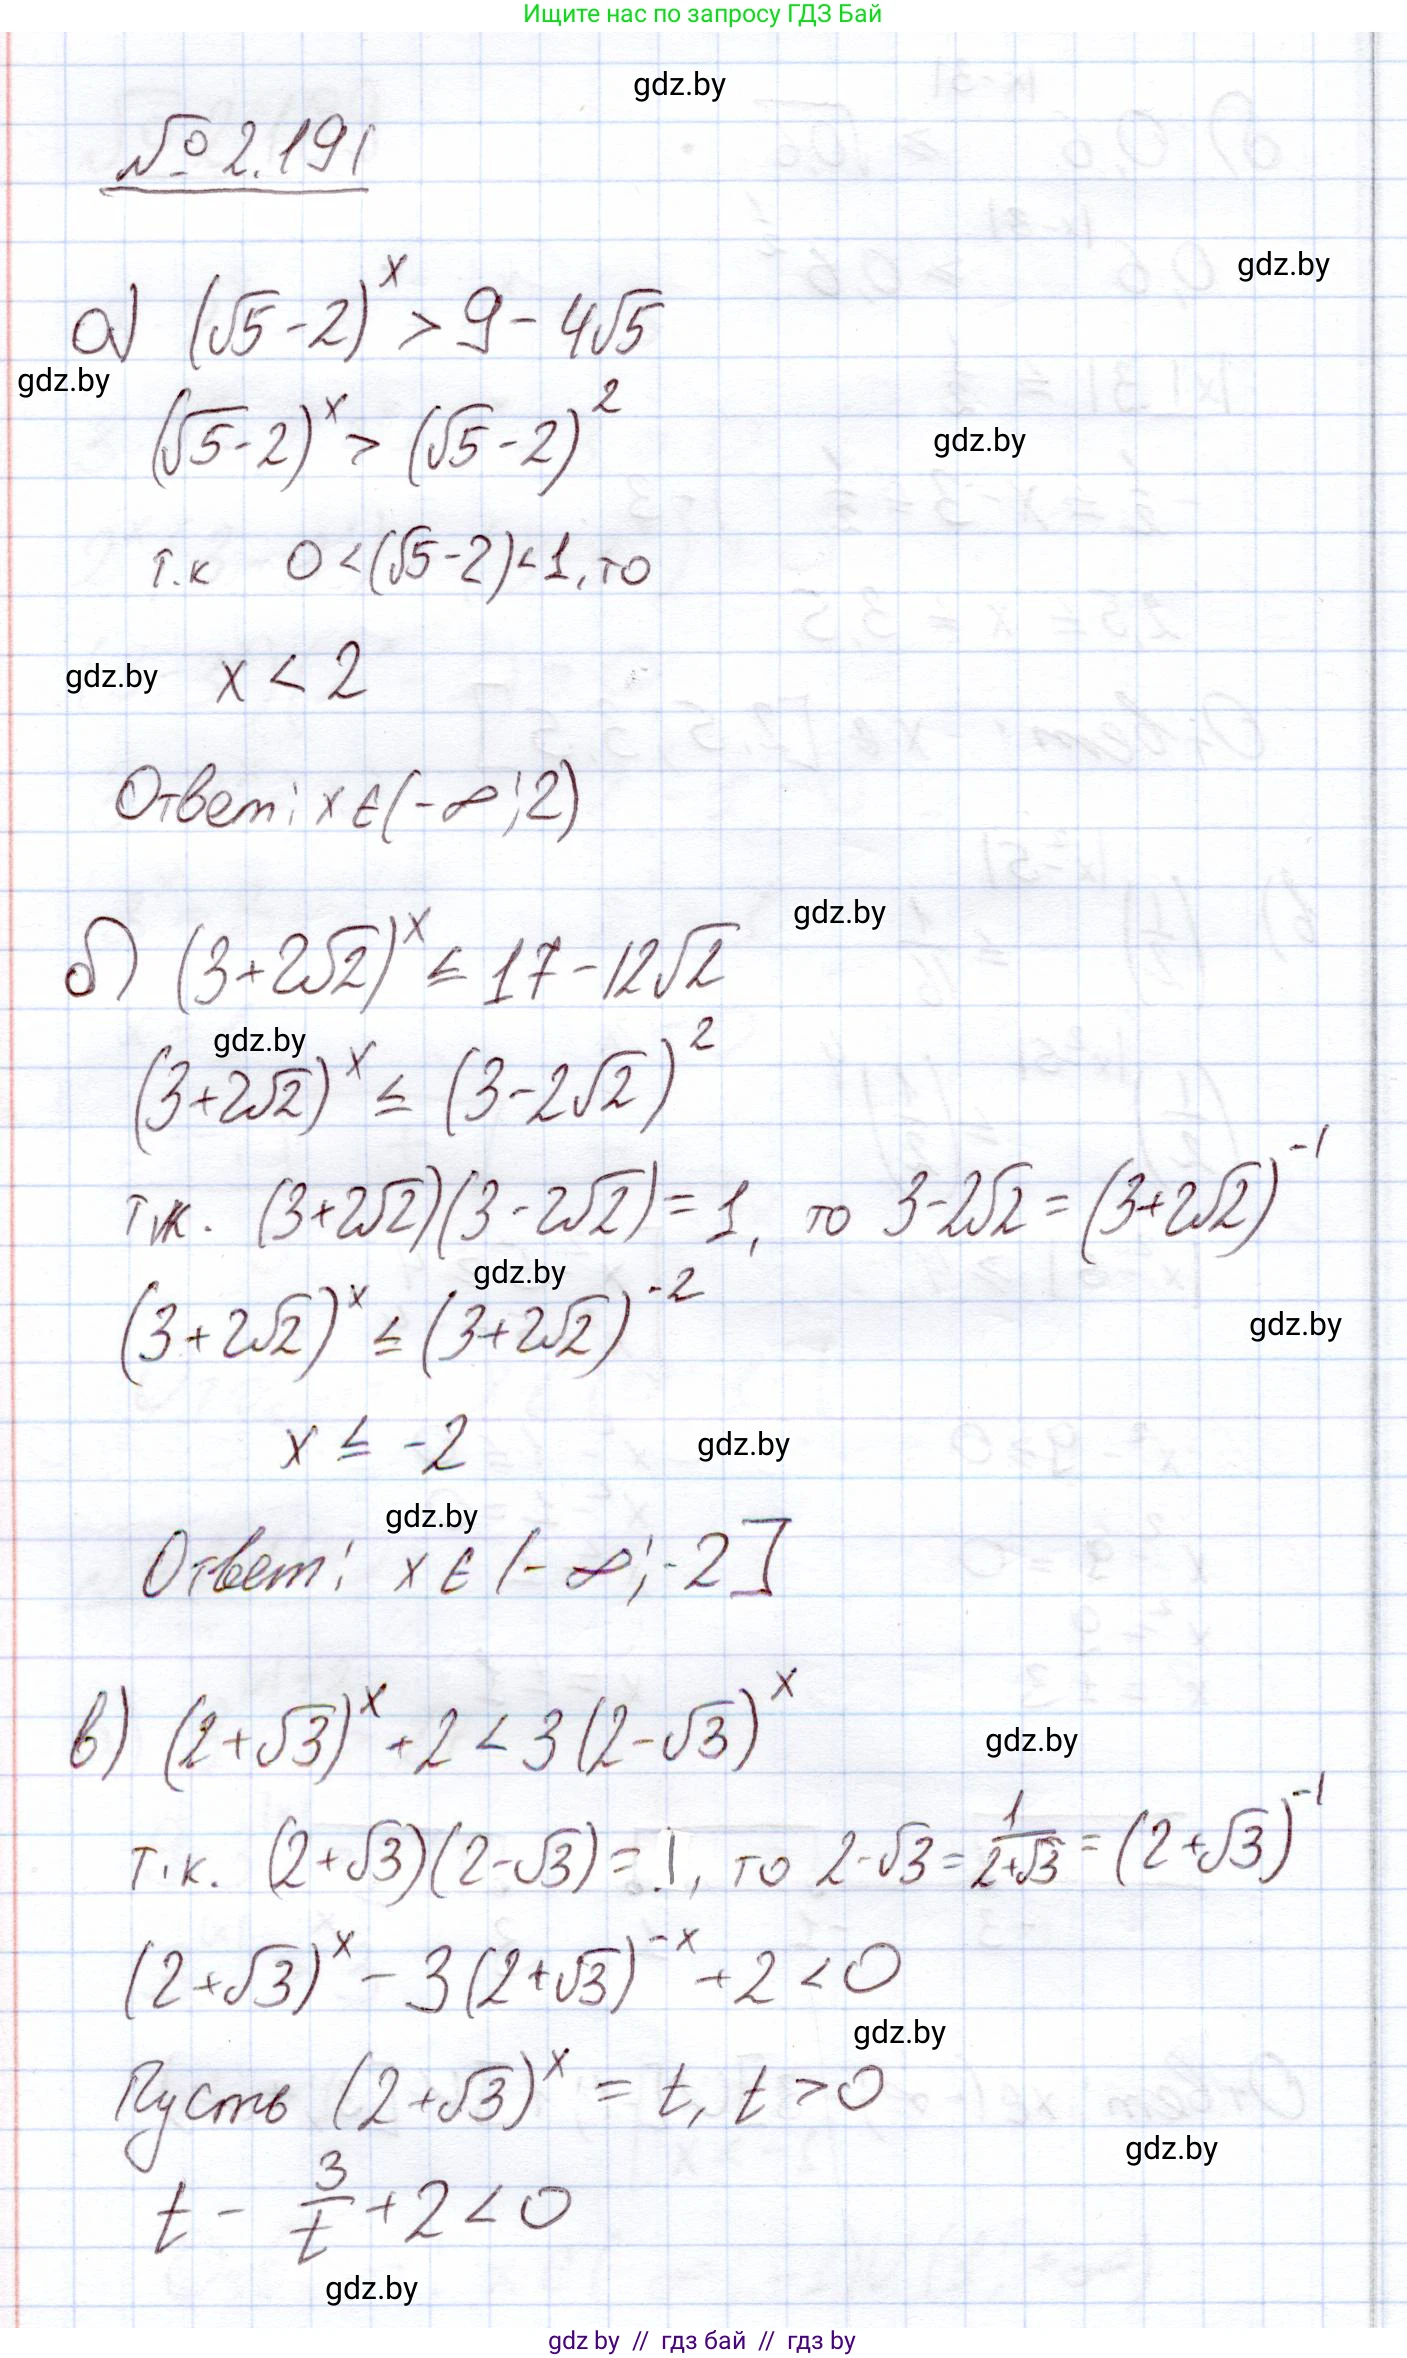 Ищите нас по запросу ГДЗ Бай
gdz.by
№ 2.191
gdz.by
а) (√5-2)^x > 9-4√5
gdz.by
(√5-2)^x > (√5-2)^2
gdz.by
т.к 0<(√5-2)<1, то
gdz.by
x < 2
Ответ: x∈(-∞;2)
gdz.by
б) (3+2√2)^x ≤ 17-12√2
gdz.by
(3+2√2)^x ≤ (3-2√2)^2
т.к. (3+2√2)(3-2√2)=1, то 3-2√2=(3+2√2)^-1
gdz.by
(3+2√2)^x ≤ (3+2√2)^-2
gdz.by
x ≤ -2
gdz.by
gdz.by
Ответ: x∈(-∞;-2]
в) (2+√3)^x+2<3(2-√3)^x
gdz.by
т.к. (2+√3)(2-√3)=1, то 2-√3=1/(2+√3)=(2+√3)^-1
(2+√3)^x-3(2+√3)^-x+2<0
gdz.by
Пусть (2+√3)^x=t, t>0
gdz.by
t-3/t+2<0
gdz.by
gdz by // гдз бай // гдз by